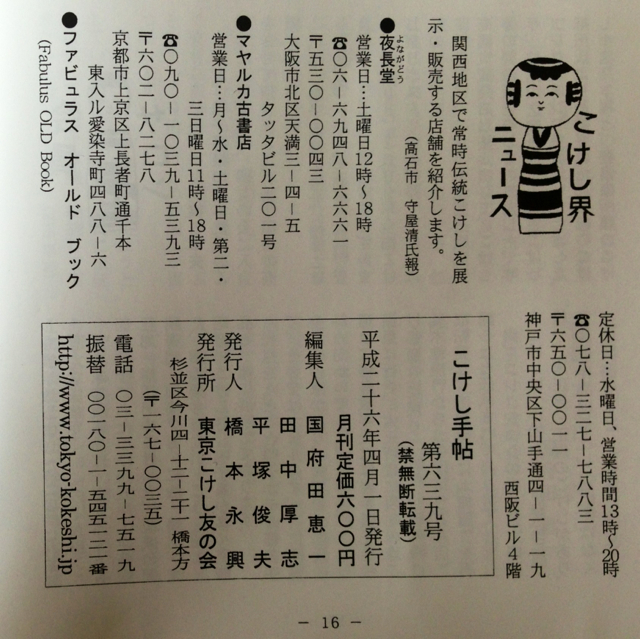 こけし界
ニュース
関西地区で常時伝統こけしを展
示・販売する店舗を紹介します。
(高石市 守屋清氏報)
●夜長堂
よながどう
営業日…土曜日12時〜18時
☎〇六−六九四八−六六六一
〒五三〇−〇〇四三
大阪市北区天満三−四−五
タツタビル二〇一号
●マヤルカ古書店
営業日…月〜水・土曜日・第二・
三日曜日11時〜18時
☎〇九〇−一〇三九−五三九三
〒六〇二−八二七八
京都市上京区上長者町通千本
東入ル愛染寺町四八八−六
●ファビュラス オールド ブック
(Fabulus OLD Book)
定休日…水曜日、営業時間13時〜20時
☎〇七八−三二七−七八八三
〒六五〇−〇〇一一
神戸市中央区下山手通四−一−一九
西阪ビル4階
こけし手帖
第六三九号
(禁無断転載)
平成二十六年四月一日発行
月刊定価六〇〇円
編集人 国府田恵一
田中厚志
平塚俊夫
発行人 橋本永興
発行所 東京こけし友の会
杉並区今川四−十二−二十一 橋本方
(〒一六七−〇〇三五)
電話 〇三−三三九九−七五一九
振替 〇〇一八〇−一−五四五一二一番
http://www.tokyo-kokeshi.jp
− 16 −